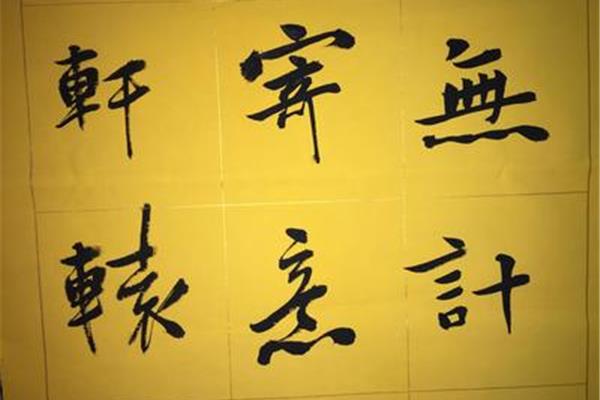 無計
寄意
軒轅